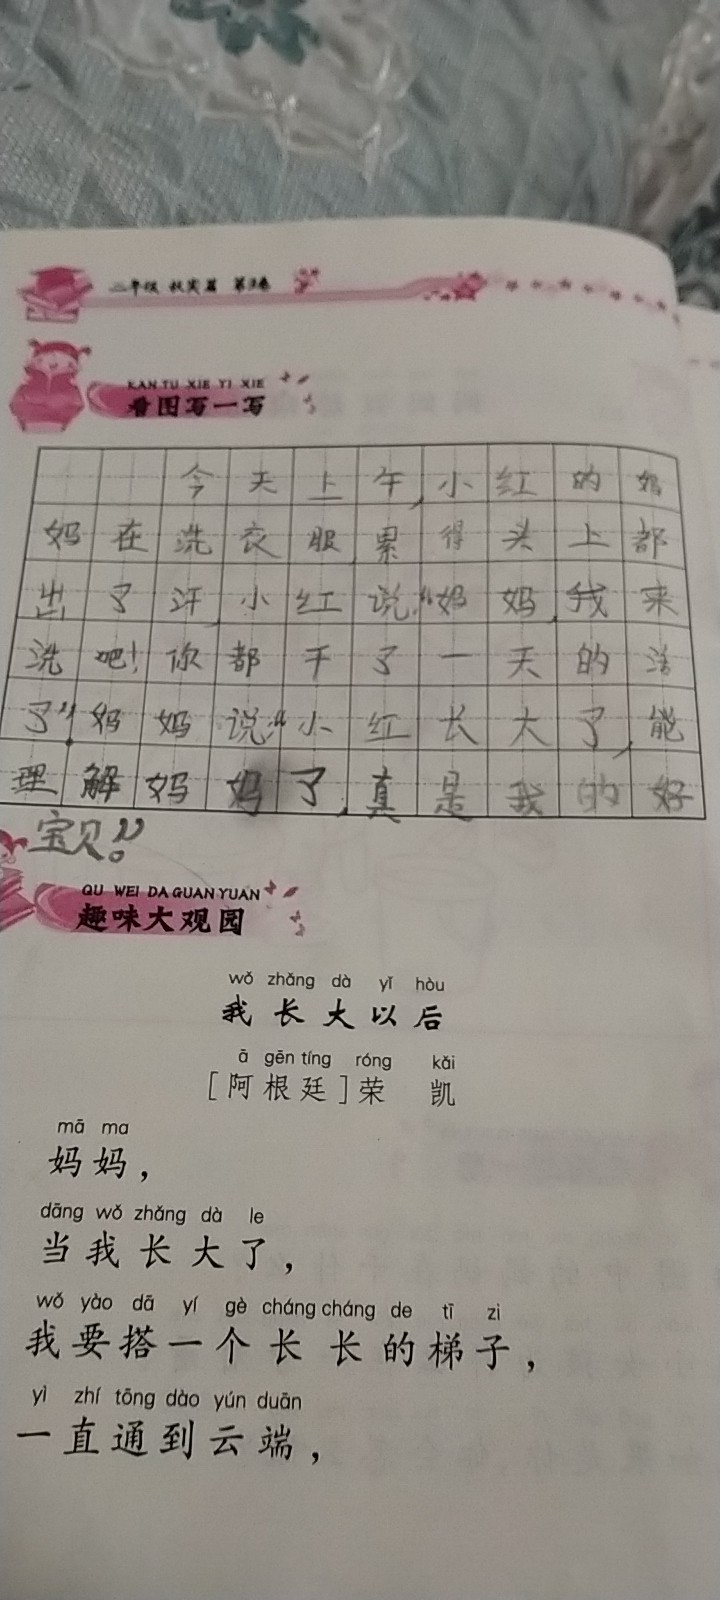 二年级 秋实篇 第3卷
KAN TU XIE YI XIE
看图写一写
今天上午,小红的妈
妈在洗衣服,累得头上都
出了汗,小红说:“妈妈,我来
洗吧!你都干了一天的活
了”,妈妈说:“小红长大了,能
理解妈妈了,真是我的好
宝贝!”。
QU WEI DA GUAN YUAN
趣味大观园
wǒ zhǎng dà yǐ hòu
我长大以后
ā gēn tíng róng kǎi
[阿根廷]荣 凯
mā ma
妈妈,
dāng wǒ zhǎng dà le
当我长大了,
wǒ yào dā yí gè cháng cháng de tī zi
我要搭一个长长的梯子,
yì zhí tōng dào yún duān
一直通到云端,